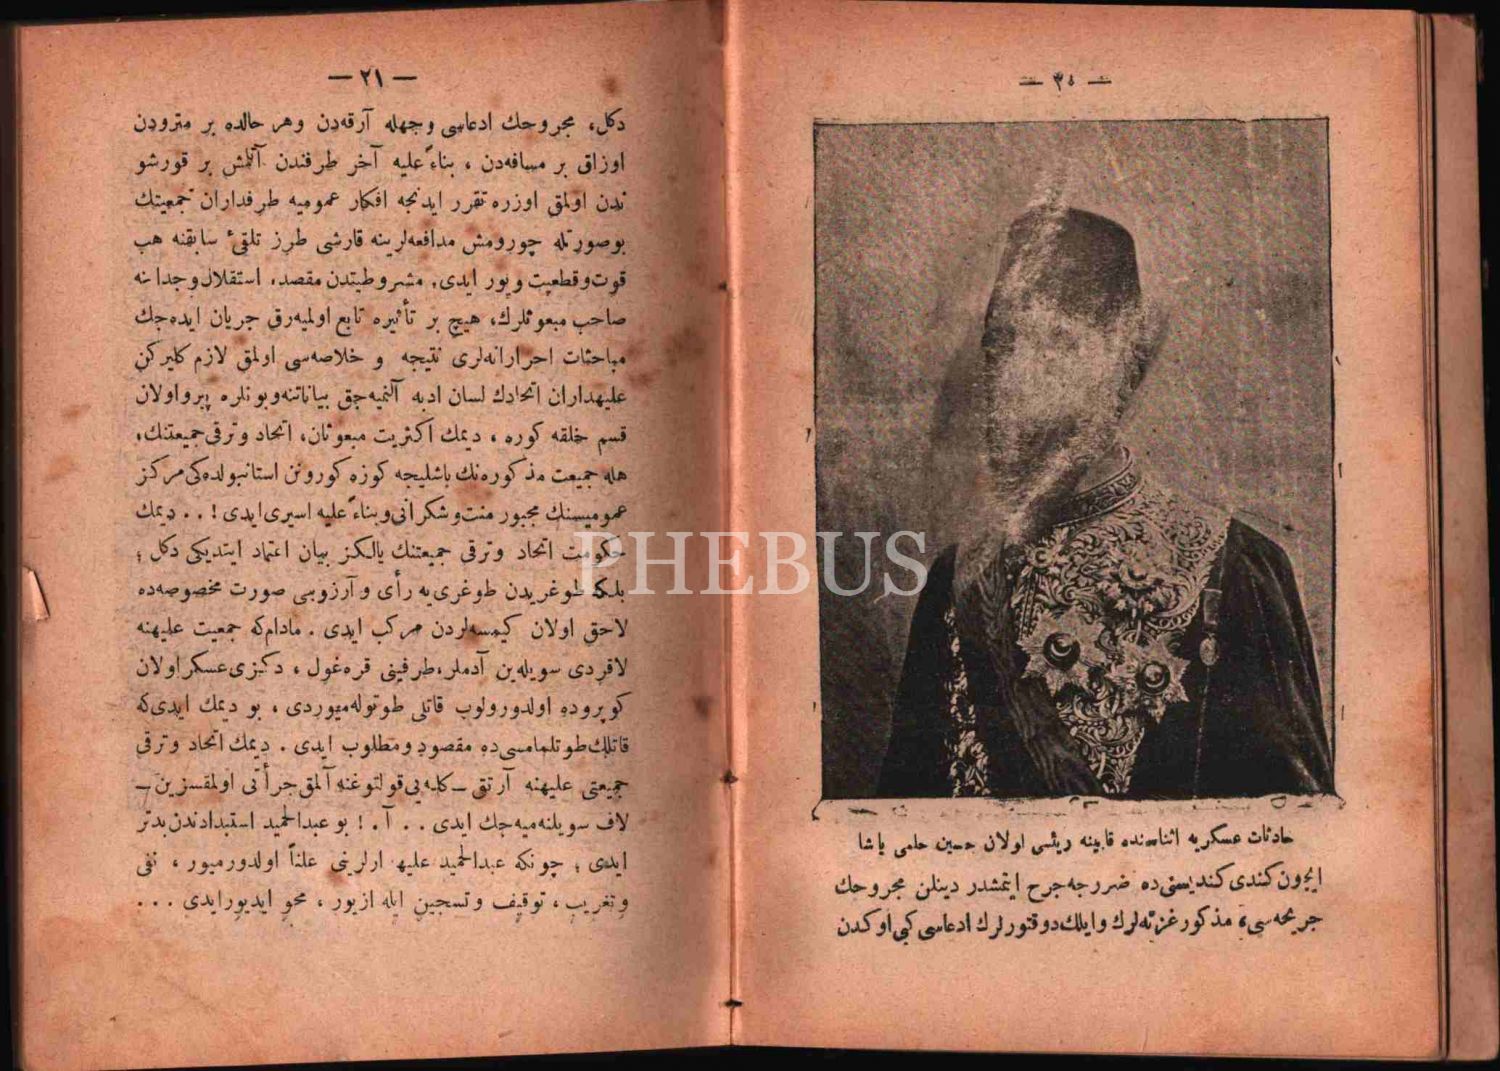 — ٢٠ —
حادثات عسكريه اثناسنده قابينه رئيسى اولان حسين حلمى پاشا
ايچون كندى كنديسنى ده ضررجه جرح ايتمشدر دينلن مجروحك
جريحه سى، مذكور غزته لرك وايلك دوقتورلرك ادعاسى كبى اوكدن
— ٢١ —
دكل، مجروحك ادعاسى وجهله آرقه دن وهر حالده بر مترودن
اوزاق بر مسافه دن ، بناءً عليه آخر طرفندن آتلمش بر قورشو
ندن اولمق اوزره تقرر ايدنجه افكار عموميه طرفداران جمعيتك
بوصورتله چورومش مدافعه لرينه قارشى طرز تلقئ سابقنه هپ
قوت وقطعيت ويور ايدى. مشروطيتدن مقصد، استقلال وجدانه
صاحب مبعوثلرك، هيچ بر تأثيره تابع اولميه رق جريان ايده جك
مباحثات احرارانه لرى نتيجه و خلاصه سى اولمق لازم كليركن
عليهداران اتحادك لسان ادبه آلنميه جق بياناتنه وبونلره پيرو اولان
قسم خلقه كوره ، ديمك اكثريت مبعوثان، اتحاد وترقى جمعيتنك،
هله جمعيت مذكوره نك باشليجه كوزه كورونن استانبولده كى مركز
عموميسنك مجبور منت وشكرانى وبناءً عليه اسيرى ايدى ! . . ديمك
حكومت اتحاد وترقى جمعيتنك يالكز بيان اعتماد ايتديكى دكل ؛
بلكه طوغريدن طوغرى يه رأى و آرزوسى صورت مخصوصه ده
لاحق اولان كيمسه لردن مركب ايدى . مادامكه جمعيت عليهنه
لاقردى سويله ين آدملر، طرفينى قره غول ، دكزى عسكر اولان
كوپروده اولدورولوب قاتلى طوتوله ميوردى ، بو ديمك ايدى كه
قاتلك طوتلمامسى ده مقصود ومطلوب ايدى . ديمك اتحاد وترقى
جمعيتى عليهنه آرتق ــ كله يى قولتوغنه آلمق جرأتى اولمقسزين ــ
لاف سويلنه ميه جك ايدى . . آ . ! بو عبدالحميد استبدادندن بدتر
ايدى ؛ چونكه عبدالحميد عليهدارلرينى علناً اولدورميور ، نفى
وتغريب ، توقيف وتسجين ايله ازيور ، محو ايديور ايدى . . .
PHEBUS